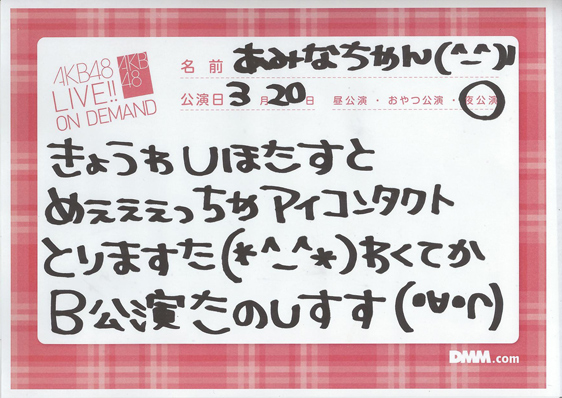 AKB48
LIVE!!
ON DEMAND
AKB
48
名前 あみなちゃん(^-^)υ
公演日 3月20日 昼公演・おやつ公演・夜公演
きょうゎしほたすと
めぇぇぇっちゃアイコンタクト
とりますた(*^-^*)わくてか
B公演たのしすす(•∀•ก)
DMM.com